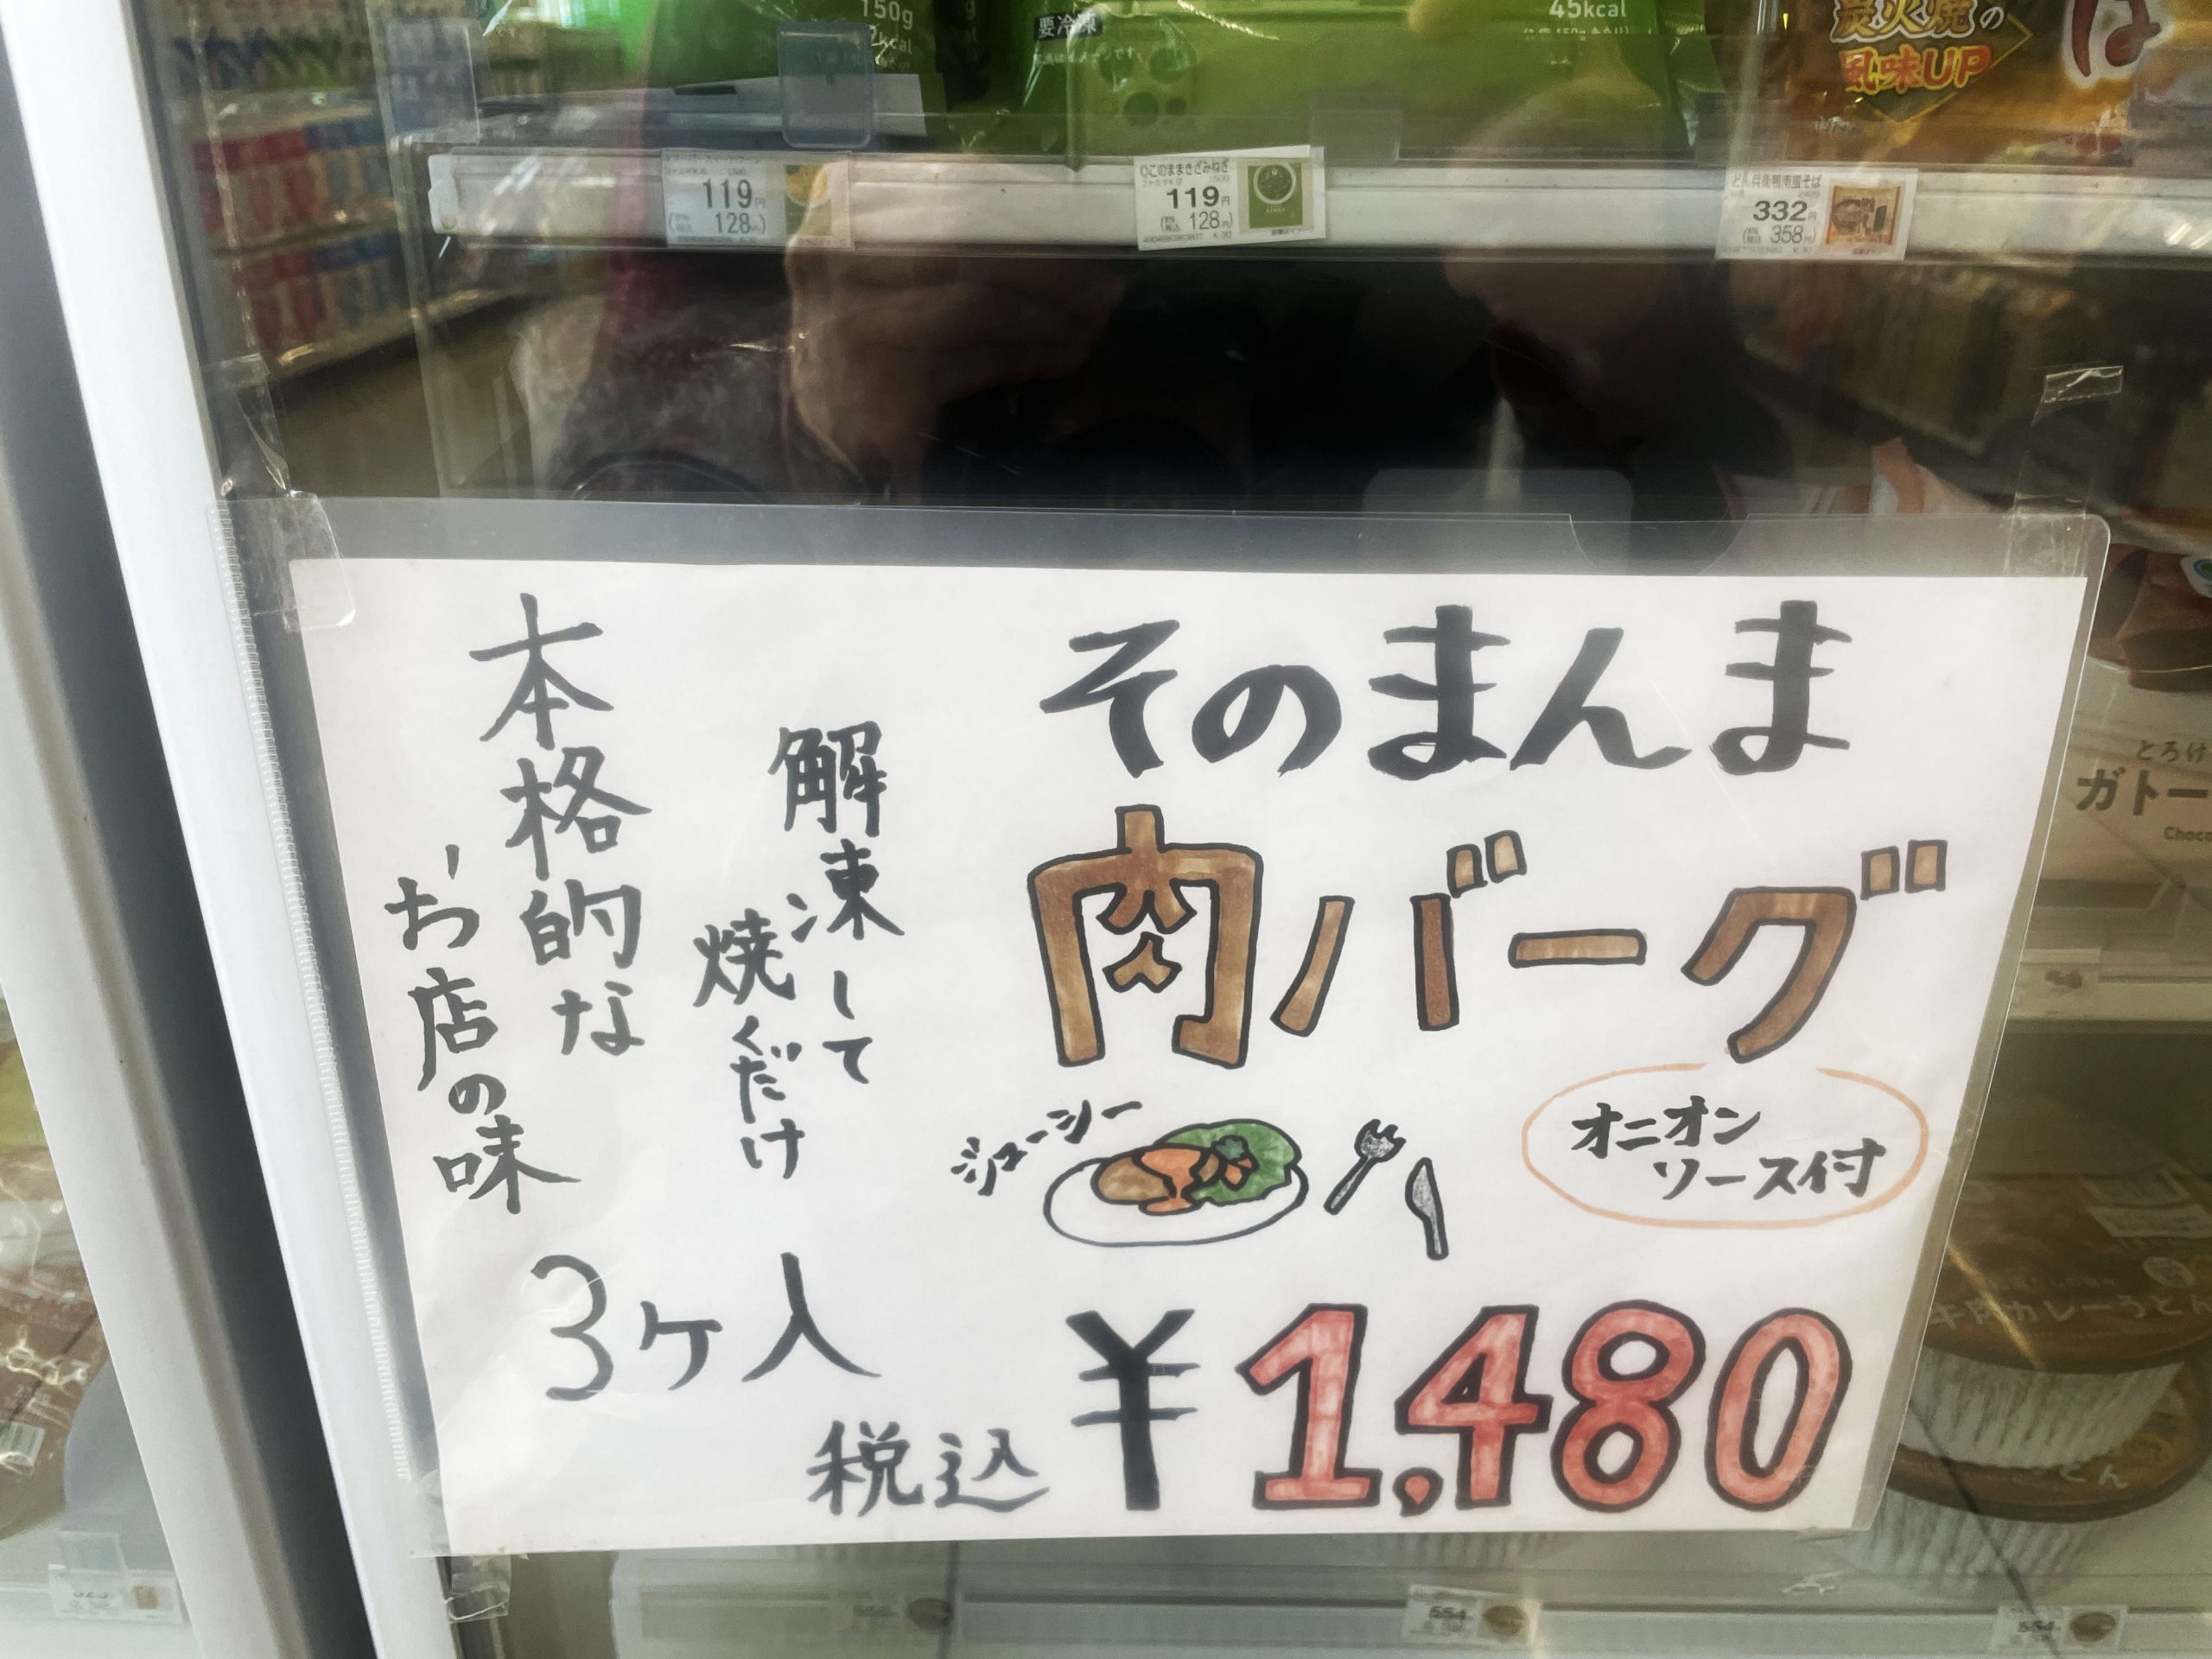 150g
2kcal
要冷凍
45kcal
炭火焼の
風味UP
119円
128
そのままきざみねぎ
119円
128円
どん兵衛鴨南蛮そば
332円
358円
そのまんま
肉バーグ
ジューシー
オニオン
ソース付
¥1,480
税込
解凍して
焼くだけ
本格的な
お店の味
3ヶ入
とろけ
ガトー
Choco
牛肉カレーうどん
554
554